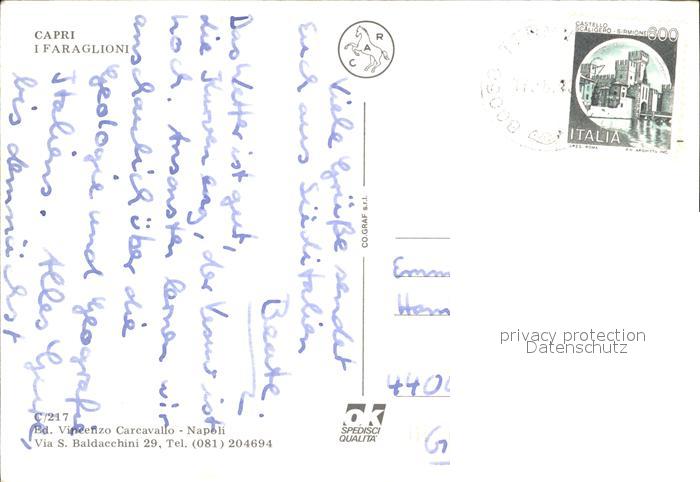 CAPRI
I FARAGLIONI
CAR
CASTELLO
SCALIGERO - SIRMIONE 800
ITALIA
I.P.Z.S. ROMA
Viele Grüße sendet
Euch aus Süditalien
Beate.
Das Wetter ist gut,
die Kurven eng, der Vesuv ist
hoch. Ansonsten lernen wir
anschaulich über die
Geologie und Geografie
Italiens. Alles Gute,
bis demnächst
CO.GRAF s.r.l.
Emm
Ham
440
privacy protection
Datenschutz
C/217
Ed. Vincenzo Carcavallo - Napoli
Via S. Baldacchini 29, Tel. (081) 204694
ok
SPEDISCI
QUALITÀ